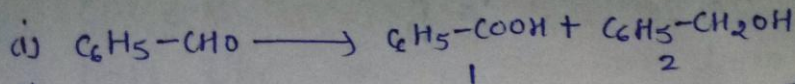 (i) C6H5-CHO ⟶ C6H5-COOH + C6H5-CH2OH
1 2